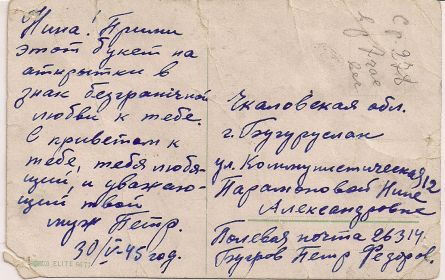 Нина! Прими
этот букет на
открытки в
знак безграничной
любви к тебе.
С приветом к
тебе, тебя любя-
щий, и уважаю-
щий твой
муж Петр.
30/V-45 год.
Чкаловская обл.
г. Бугуруслан
ул. Коммунистическая 12
Парамоновой Нине
Александровне
Полевая почта 26314.
Бугров Петр Федоров.
ELITE